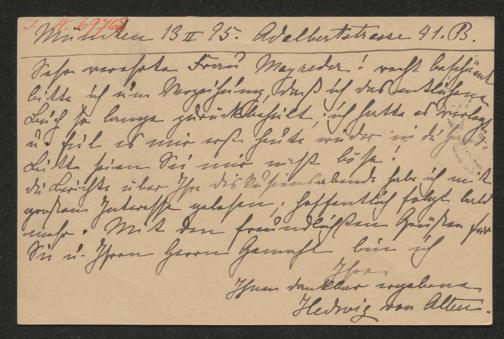 I. N. 69762
München 13 II 95. Adalbertstrasse 41. B.
Sehr verehrte Frau Mayreder! recht beschämt
bitte ich um Verzeihung, daß ich das entliehene
Buch so lange zurückbehielt, ich hatte es verlegt
u. fiel es mir erst heute wieder in die Hand
Bitte seien Sie mir nicht böse!
Die Berichte über Ihre Diskussionsabende habe ich mit
großem Interesse gelesen, hoffentlich folgt bald
mehr. Mit den freundlichsten Grüßen für
Sie u. Ihren Herrn Gemahl bin ich
Ihre
Ihnen dankbar ergebene
Hedwig von Alten.